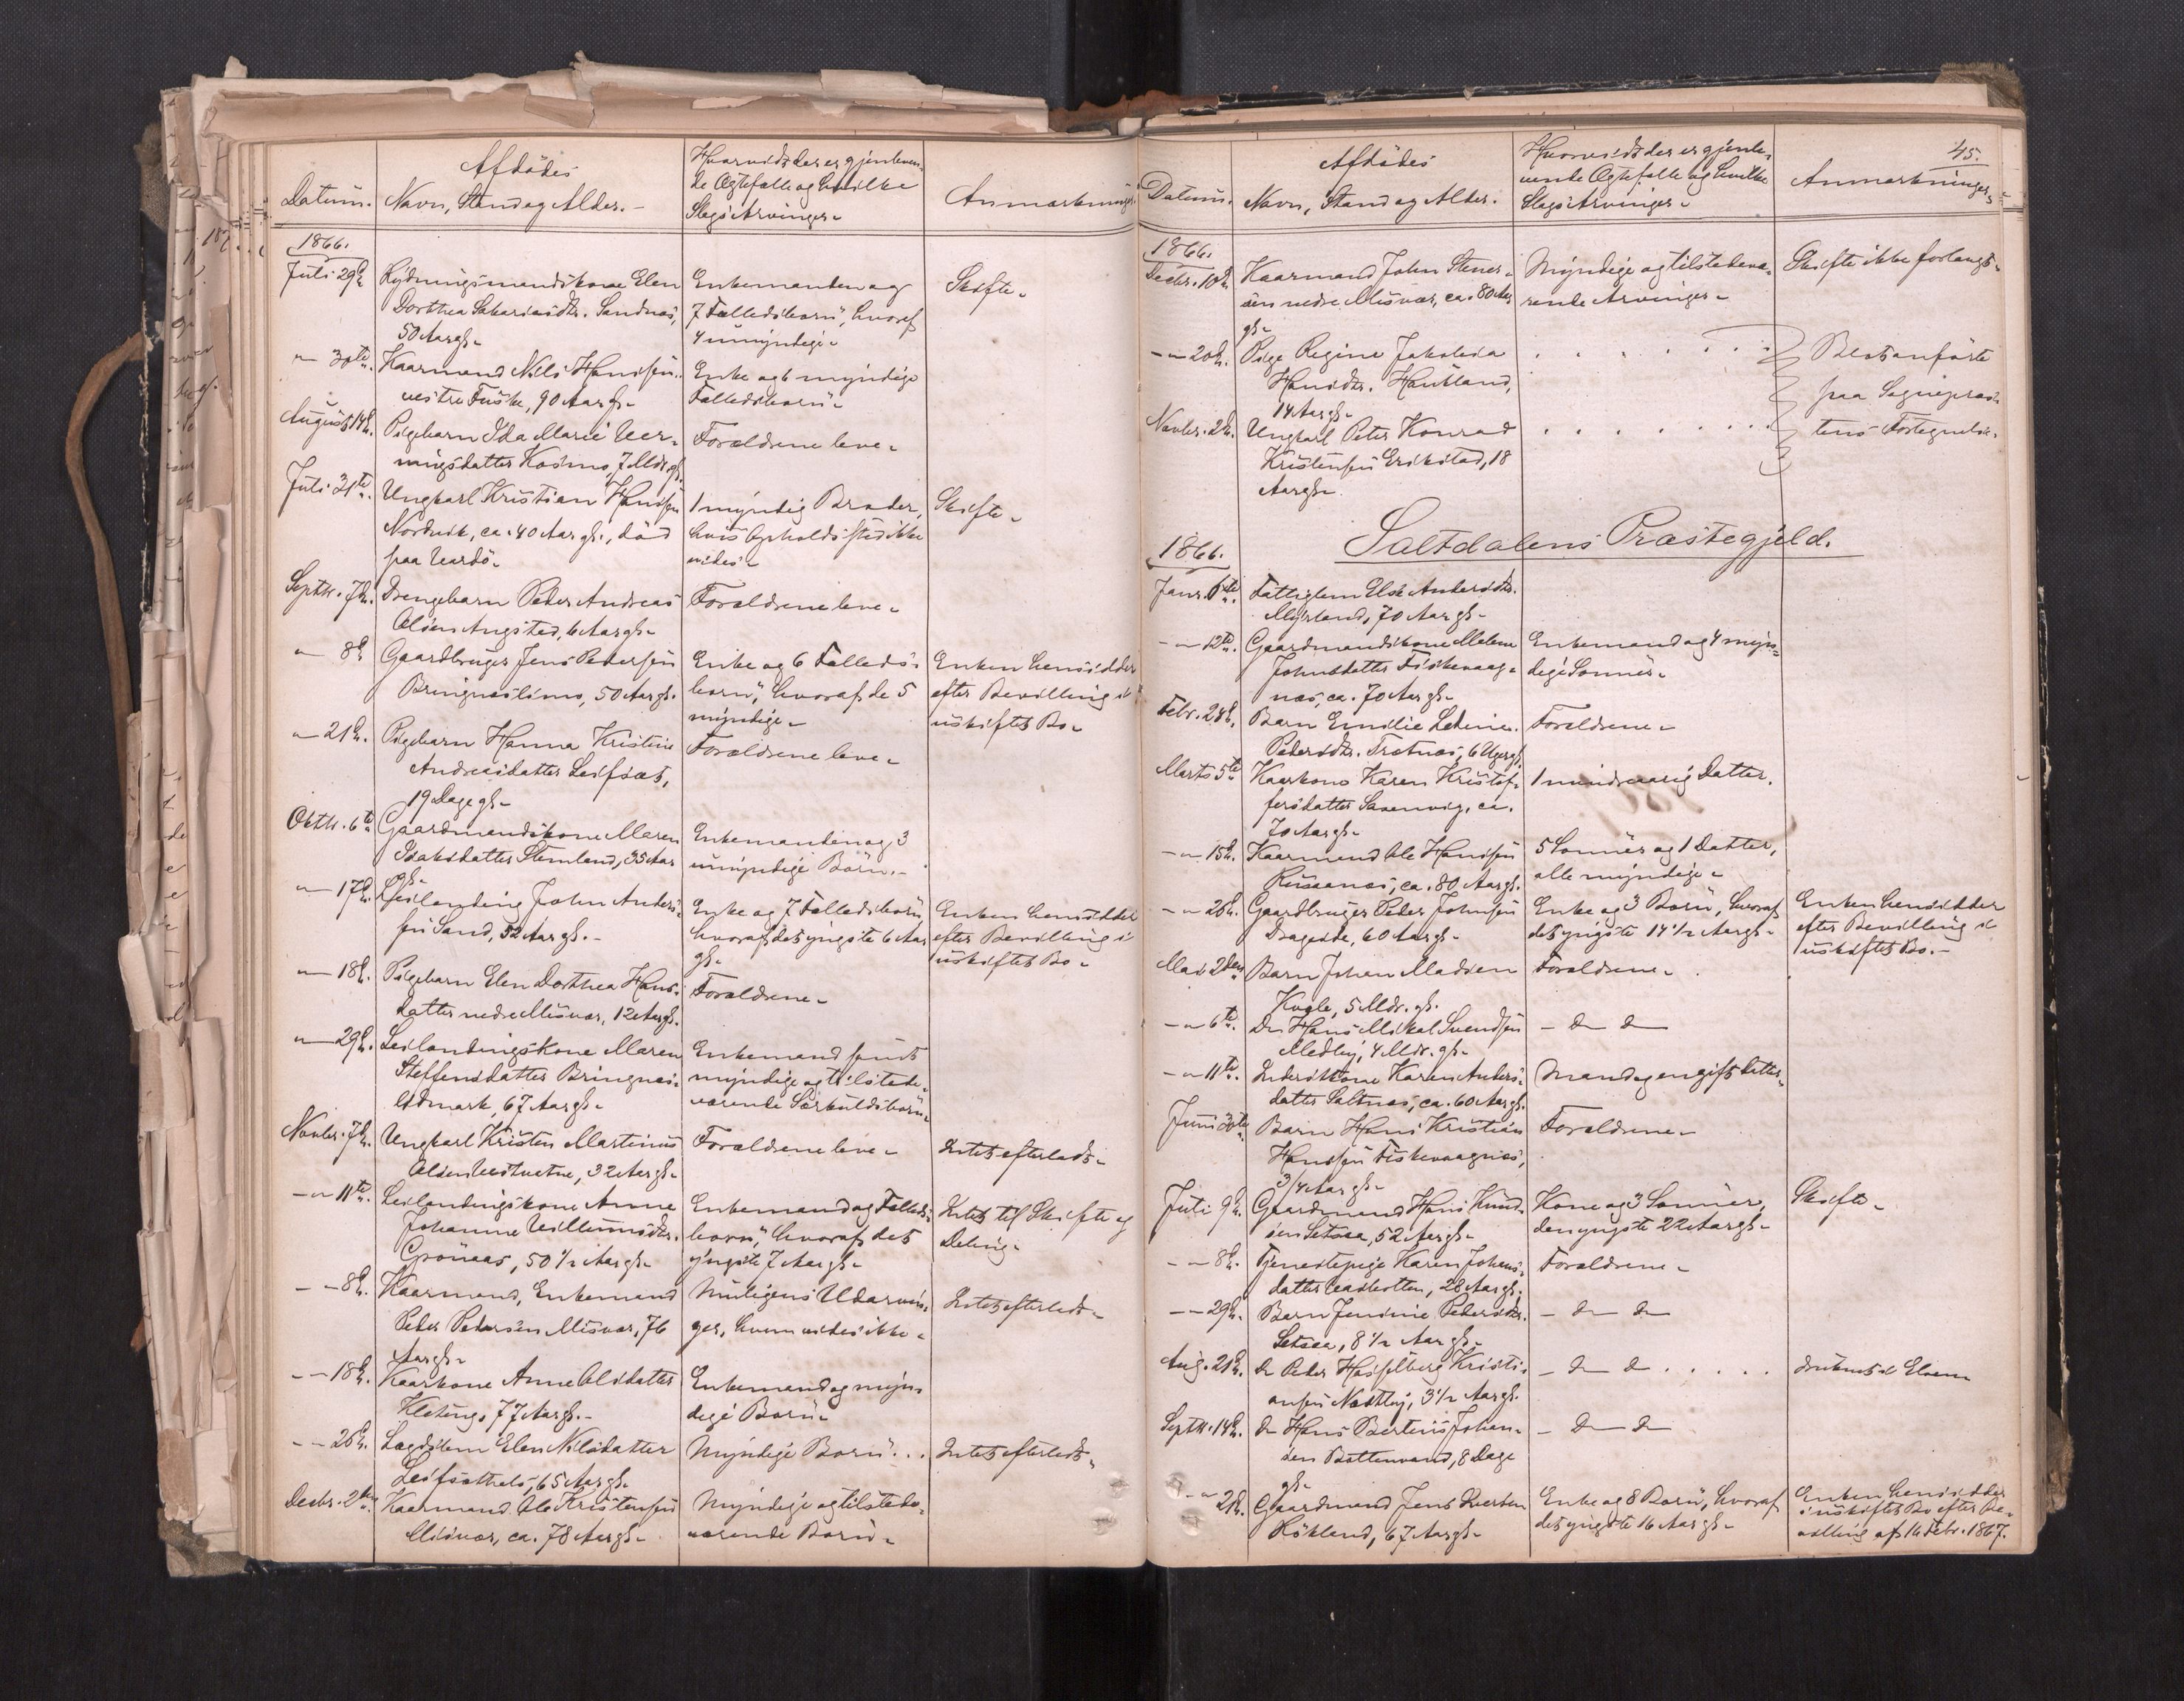 Datum.
Afdödes
Navn, Stand og Alder.
Hvorvidt der er gjenleven-
de Ægtefælle og hvilke
Slags Arvinger.
Anmærkninger
1866.
Juli 29de
Rydningsmandskone Elen
Dorthea Sakariasdtr. Sandnæs,
50 Aar gl.
Enkemanden og
7 Fælledsbørn, hvoraf
4 umyndige
Skifte
30te
Kaarmand Nils Hansen
vestre Fuske, 90 Aar gl.
Enke og 6 myndige
Fælledsbørn
August 14de
Pigebarn Ida Marie
datter Kosmo, 7 Mdr. gl.
Forældrene leve
Juli 31te
Ungkarl Kristian Hansen
Nordvik, ca. 40 Aar gl., död
paa Vardö
1 myndig Broder,
hvis Opholdssted ikke
vides
Skifte
Septbr. 7de
Drengebarn Peder Andreas
Olsen Angsted, 6 Aar gl.
Forældrene leve
8de
Gaardbruger Jens Pedersen
Bringneslimo, 50 Aar gl.
Enke og 6 Fælleds-
børn, hvoraf de 5
myndige
Enken hensidder
efter Bevilling i
uskiftet Bo
21de
Pigebarn Hanna Kristine
Andreasdatter Leifset,
19 Dage gl.
Forældrene leve
Oktbr. 6te
Gaardmandskone Maren
Isaksdatter Stemland, 35 Aar
gl.
Enkemanden og 3
umyndige Börn.
17de
Leilending John Anders-
sen Sand, 52 Aar gl.
Enke og 7 Fælledsbörn
hvoraf det yngste 6 Aar
gl.
Enken hensidder
efter Bevilling i
uskiftet Bo
18de
Pigebarn Elen Dorthea Hans-
datter nedre Misvær, 12 Aar gl.
Forældrene
29de
Leilendingskone Maren
Steffensdatter Bringnes-
Odmark, 67 Aar gl.
Enkemand samt
myndige og tilstede-
værende Særkuldsbörn
Novbr. 7de
Ungkarl Kristen Martinus
Olsen Vestvatne, 32 Aar gl.
Forældrene leve
Intet efterladt
11te
Leilendingskone Anne
Johanne Villumsdtr.
Grönaas, 50 1/2 Aar gl.
Enkemand og Fælleds-
börn, hvoraf det
yngste 7 Aar gl.
Intet til Skifte og
Deling
8de
Kaarmand, Enkemand
Peder Pedersen Misvær, 76
Aar gl.
Muligens Udarvin-
ger, hvem vides ikke
Intet efterladt
18de
Kaarkone Anne Olsdatter
Kletting, 77 Aar gl.
Enkemand og myn-
dige Börn
26de
Lægdslem Elen Nilsdatter
Leifsethals, 65 Aar gl.
Myndige Börn . . .
Intet efterladt
Decbr. 2den
Kaarmand Ole Kristensen
Misvær, ca. 78 Aar gl.
Myndige og tilstede-
værende Börn
45.
Datum.
Afdödes
Navn, Stand og Alder.
Hvorvidt der er gjenle-
vende Ægtefælle og hvilke
Slags Arvinger
Anmærkninger
1866.
Decbr. 10de
Kaarmand John Stener-
sen nedre Misvær, ca. 80 Aar
gl.
Myndige og tilstedevæ-
rende Arvinger
Skifte ikke forlangt
20de
Pige Regine Jakobea
Hansdtr. Haukland,
14 Aar gl.
Novbr. 2den
Ungkarl Peter Konrad
Kristensen Erikstad, 18
Aar gl.
Blot anförte
paa Sognepræs-
tens Fortegnelse.
Saltdalens Præstegjeld.
1866.
Janr. 6te
Fattiglem Else Andersdtr.
Myrland, 70 Aar gl.
12te
Gaardmandskone Malene
Johnsdatter Fiskevaag-
næs, ca. 70 Aar gl.
Enkemand og 4 myn-
dige Sönner
Febr. 28de
Barn Emilie
Pedersdtr. Trætnæs, 6 Uger gl.
Forældrene
Marts 5te
Kaarkone Karen Kristof-
fersdatter Saxenvig, ca.
70 Aar gl.
1 mindreaarig Datter.
15de
Kaarmand Ole Hansen
Rusaanæs, ca. 80 Aar gl.
5 Sönner og 1 Datter,
alle myndige
26de
Gaardbruger Peder Johnsen
Drageide, 60 Aar gl.
Enke og 3 Börn, hvoraf
det yngste 14 1/2 Aar gl.
Enken hensidder
efter Bevilling i
uskiftet Bo.
Mai 2den
Barn Johan Madsen
Hogle, 5 Mdr. gl.
Forældrene
6te
Do Hans Mikal Svendsen
Medby, 4 Mdr. gl.
Do Do
11te
Inderstkone Karen Anders-
datter Saltnæs, ca. 60 Aar gl.
Mand og en gift Datter
Juni 30te
Barn Hans Kristian
Hansen Fiskevaagnæs,
3/4 Aar gl.
Forældrene
Juli 9de
Gaardmand Hans Knud-
sen Setsaa, 52 Aar gl.
Kone og 3 Sönner,
den yngste 22 Aar gl.
Skifte
8de
Tjenestepige Karen Johans-
datter Vasbotten, 28 Aar gl.
Forældrene
29de
Barn Jensine Pedersdtr.
Setsaa, 8 1/2 Aar gl.
Do Do
Aug. 21de
Do Peder Hasselberg Kristi-
ansen Næstby, 3 1/2 Aar gl.
Do Do . . . . .
druknet i Elven
Septbr. 14de
Do Hans Bertinus Johan-
sen Bottenvand, 8 Dage
gl.
Do Do
21de
Gaardmand Jens Evertsen
Rökland, 67 Aar gl.
Enke og 8 Börn, hvoraf
det yngste 16 Aar gl.
Enken hensidder
i uskiftet Bo efter Be-
villing af 16 Febr. 1867.